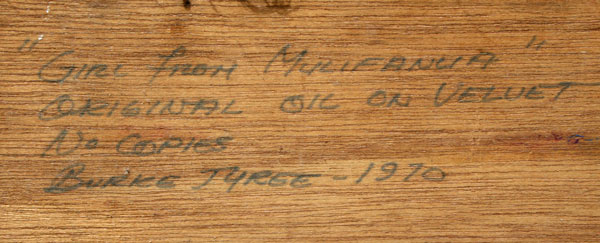 "GIRL FROM MULIFANUA"
ORIGINAL OIL ON VELVET
NO COPIES
BURKE TYREE - 1970